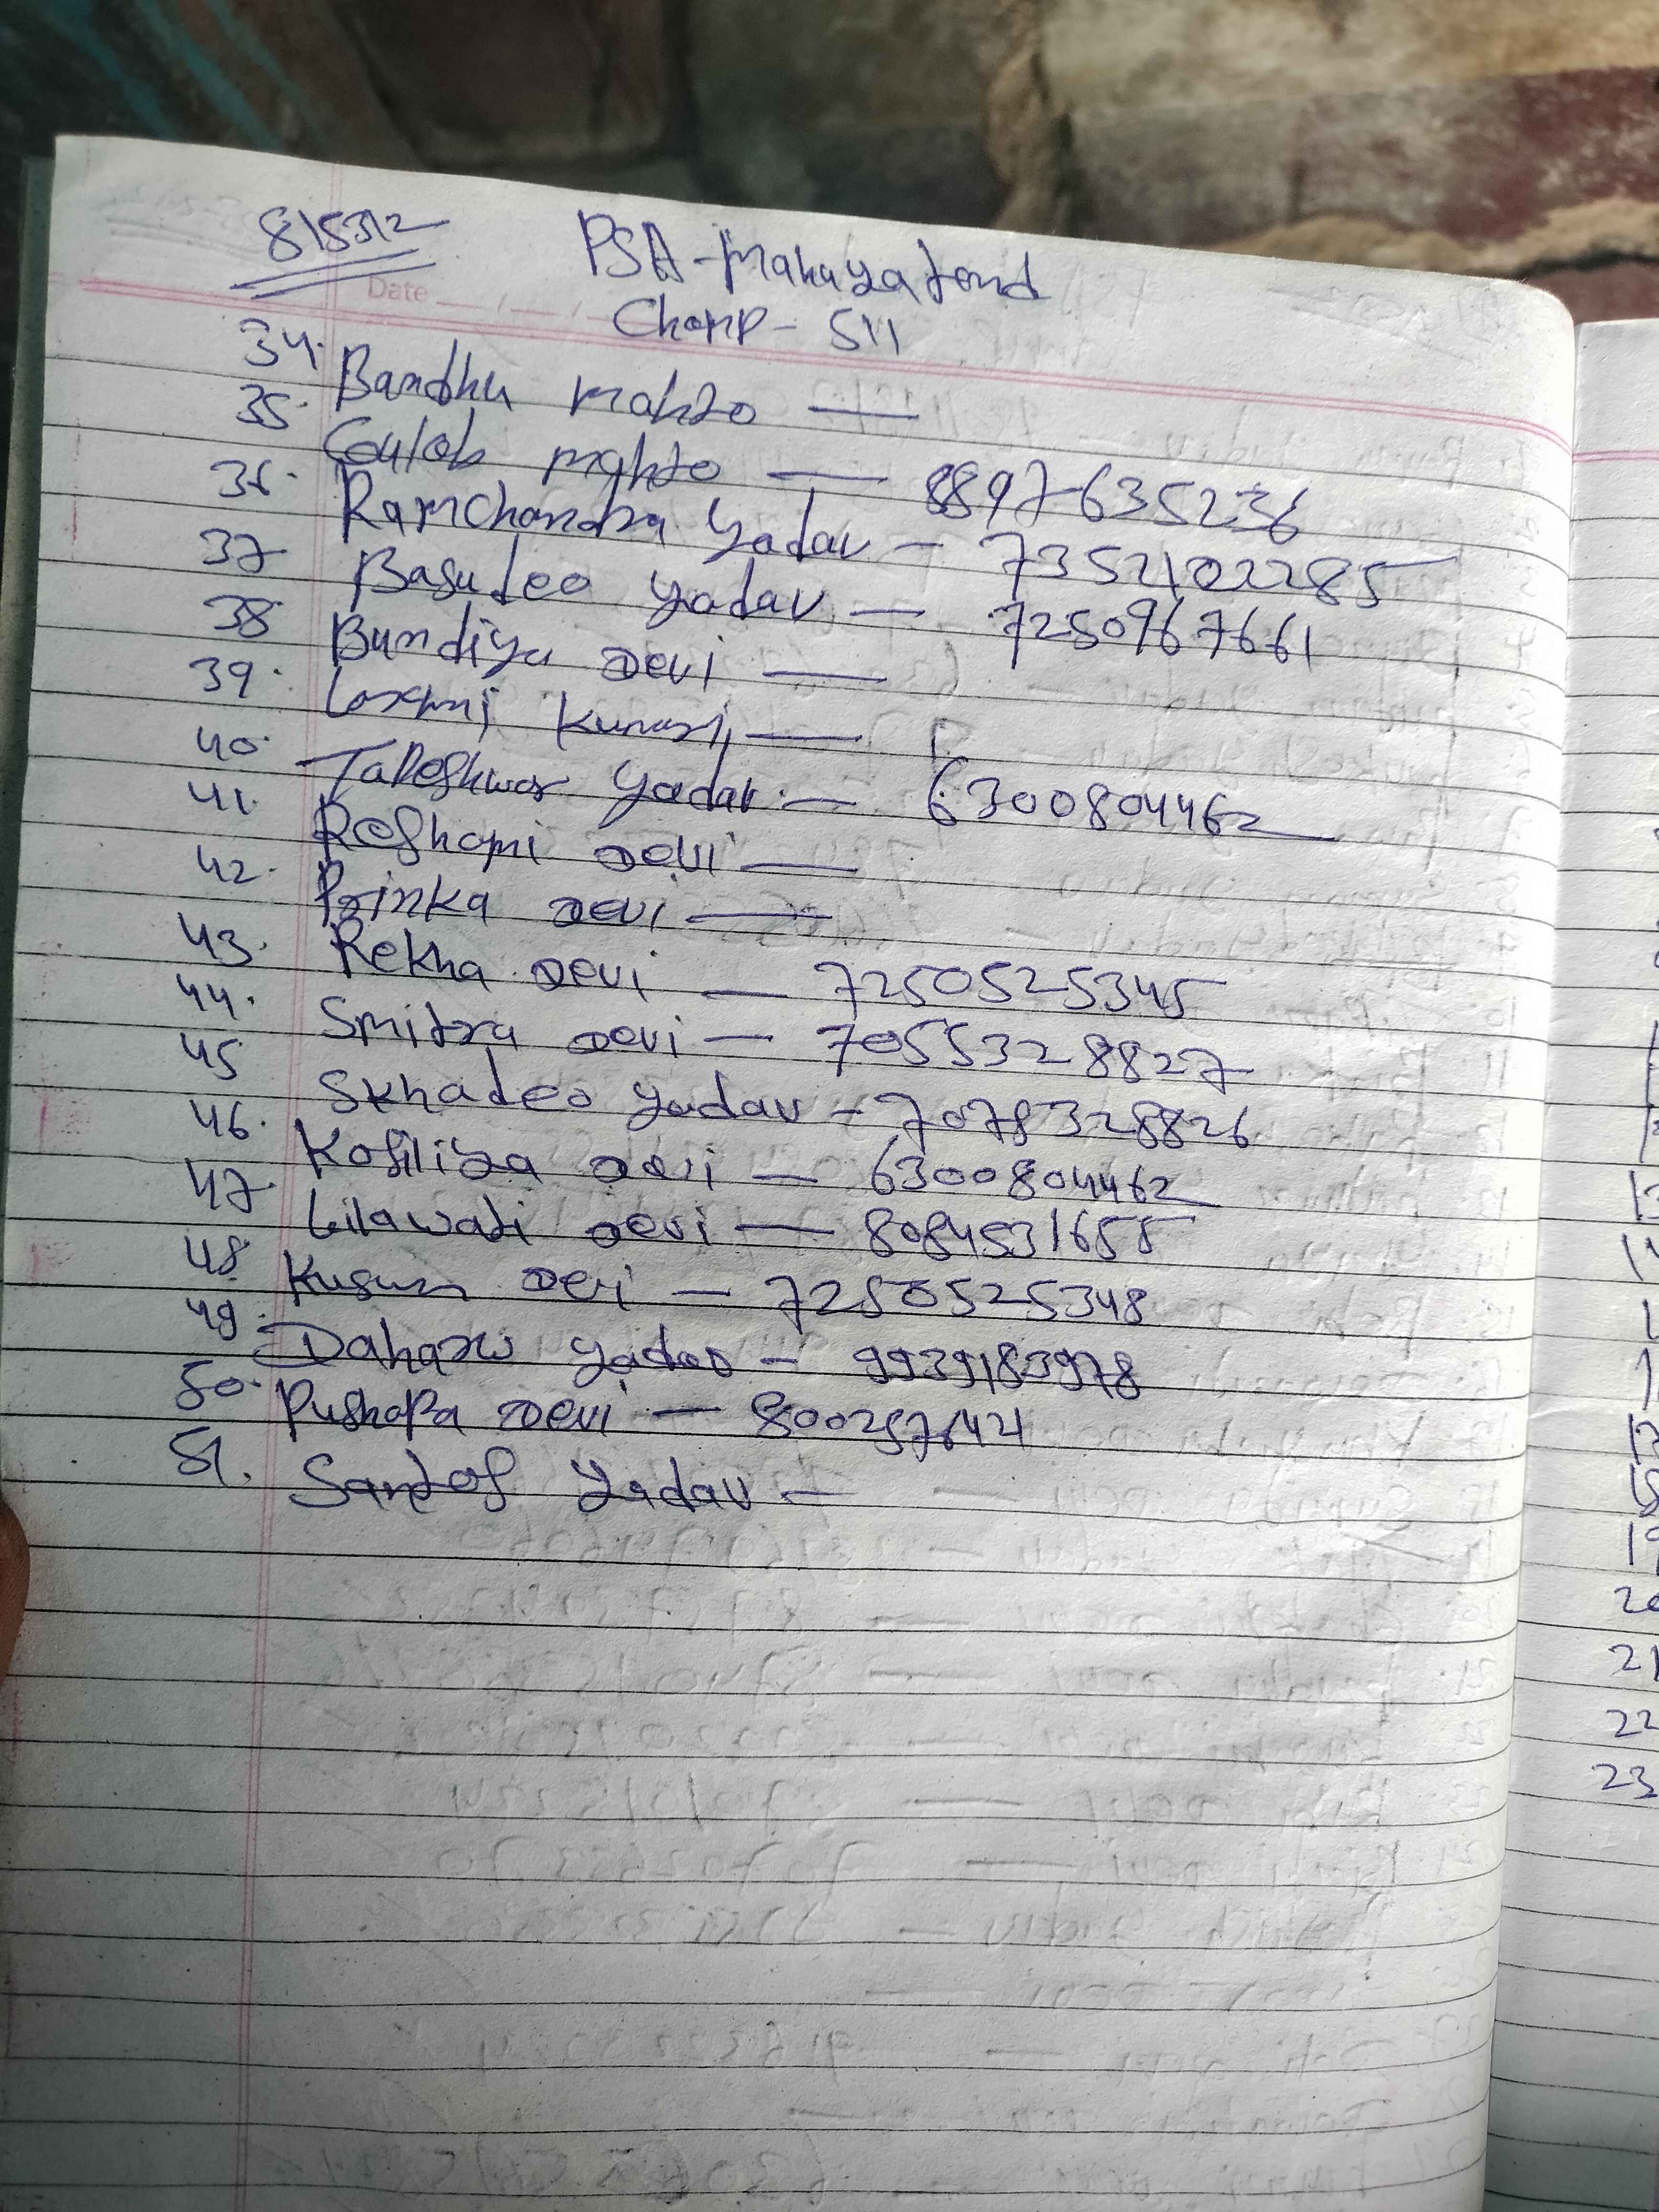 815312
PSA-Mahuyatand
Champ - 511
Date
34. Bandhu Mahto —
35. Gulab Mahto — 8897635236
36. Ramchandra Yadav — 7352102285
37. Basudeo Yadav — 7250967661
38. Bundiya Devi —
39. Laxmi Kumari —
40. Tapeshwar Yadav — 6300804462
41. Reshami Devi —
42. Prinka Devi —
43. Rekha Devi — 7250525345
44. Smitra Devi — 7055328827
45. Skhadeo Yadav — 7078328826
46. Kosiliya Devi — 6300804462
47. Lilawati Devi — 8084531655
48. Kusum Devi — 7250525348
49. Daharu Yadav — 9939183978
50. Pushapa Devi — 8002576421
51. Santos Yadav —
13
19
20
21
22
23